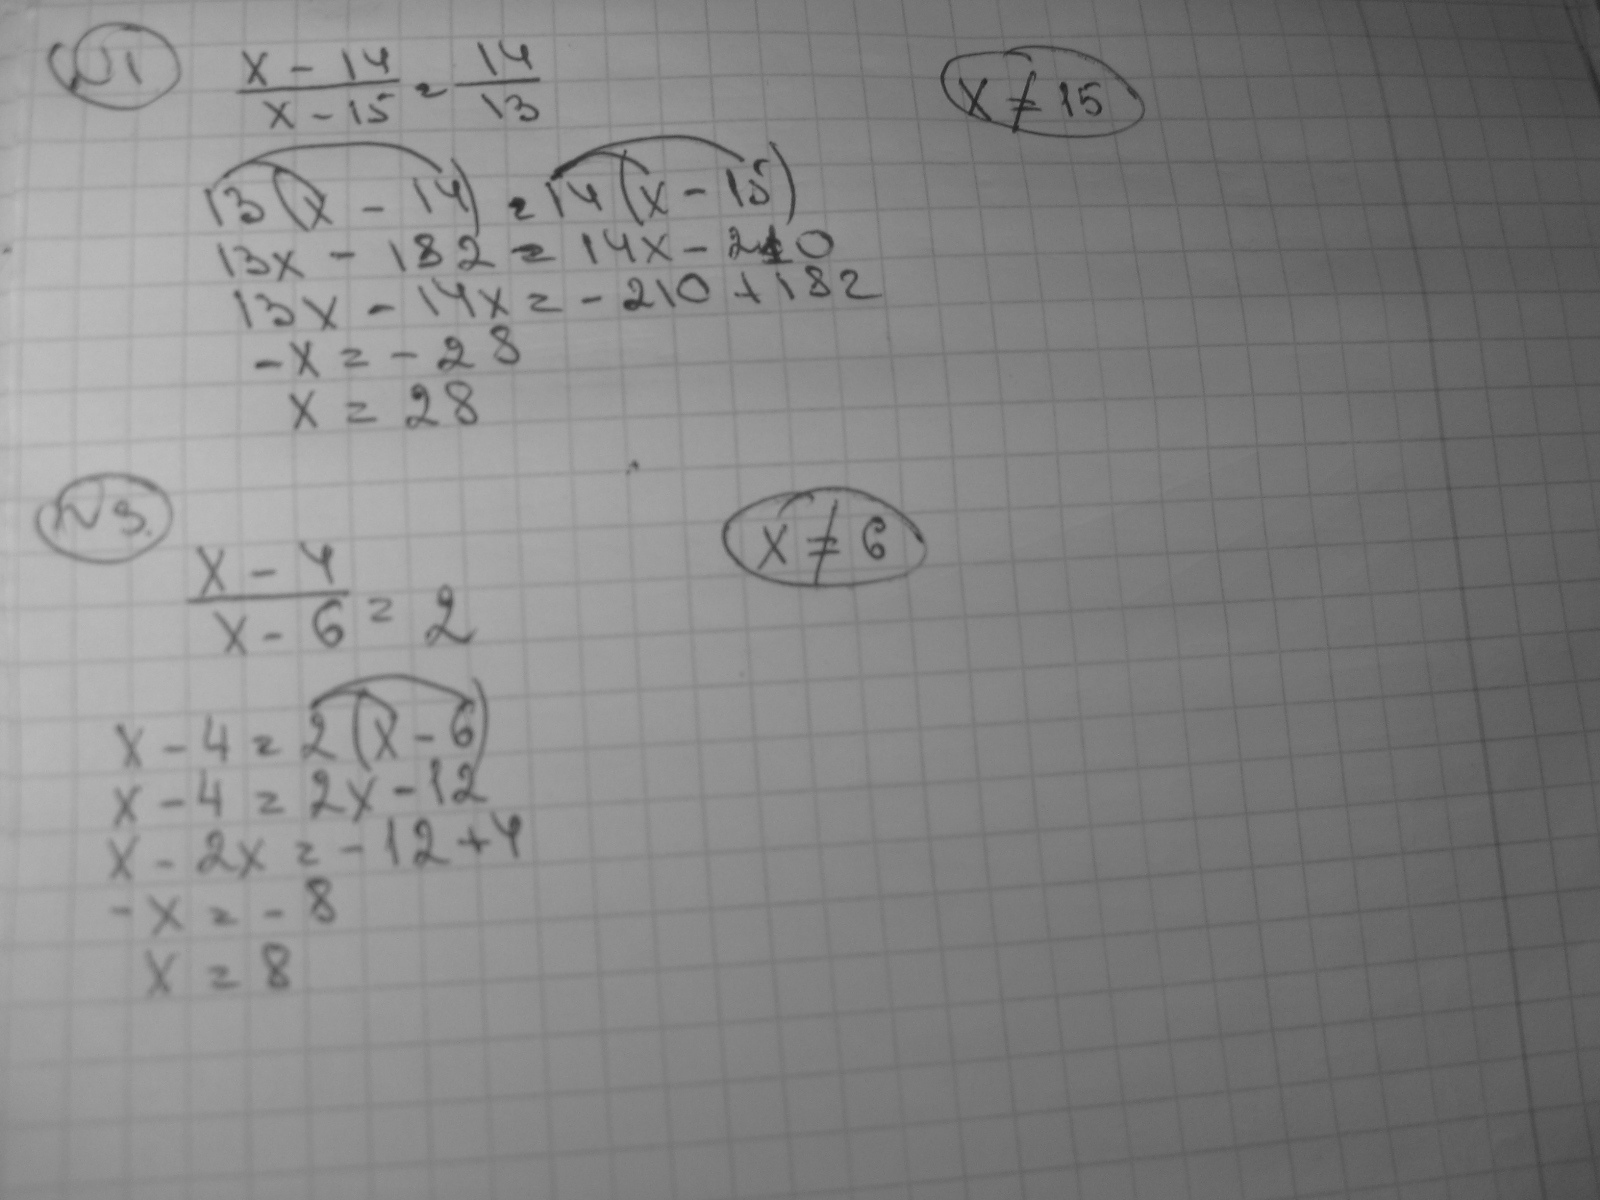 №1 x - 14 / x - 15 = 14 / 13 x ≠ 15
13(x - 14) = 14(x - 15)
13x - 182 = 14x - 210
13x - 14x = - 210 + 182
-x = - 28
x = 28
№3.
x - 4 / x - 6 = 2 x ≠ 6
x - 4 = 2(x - 6)
x - 4 = 2x - 12
x - 2x = - 12 + 4
- x = - 8
x = 8